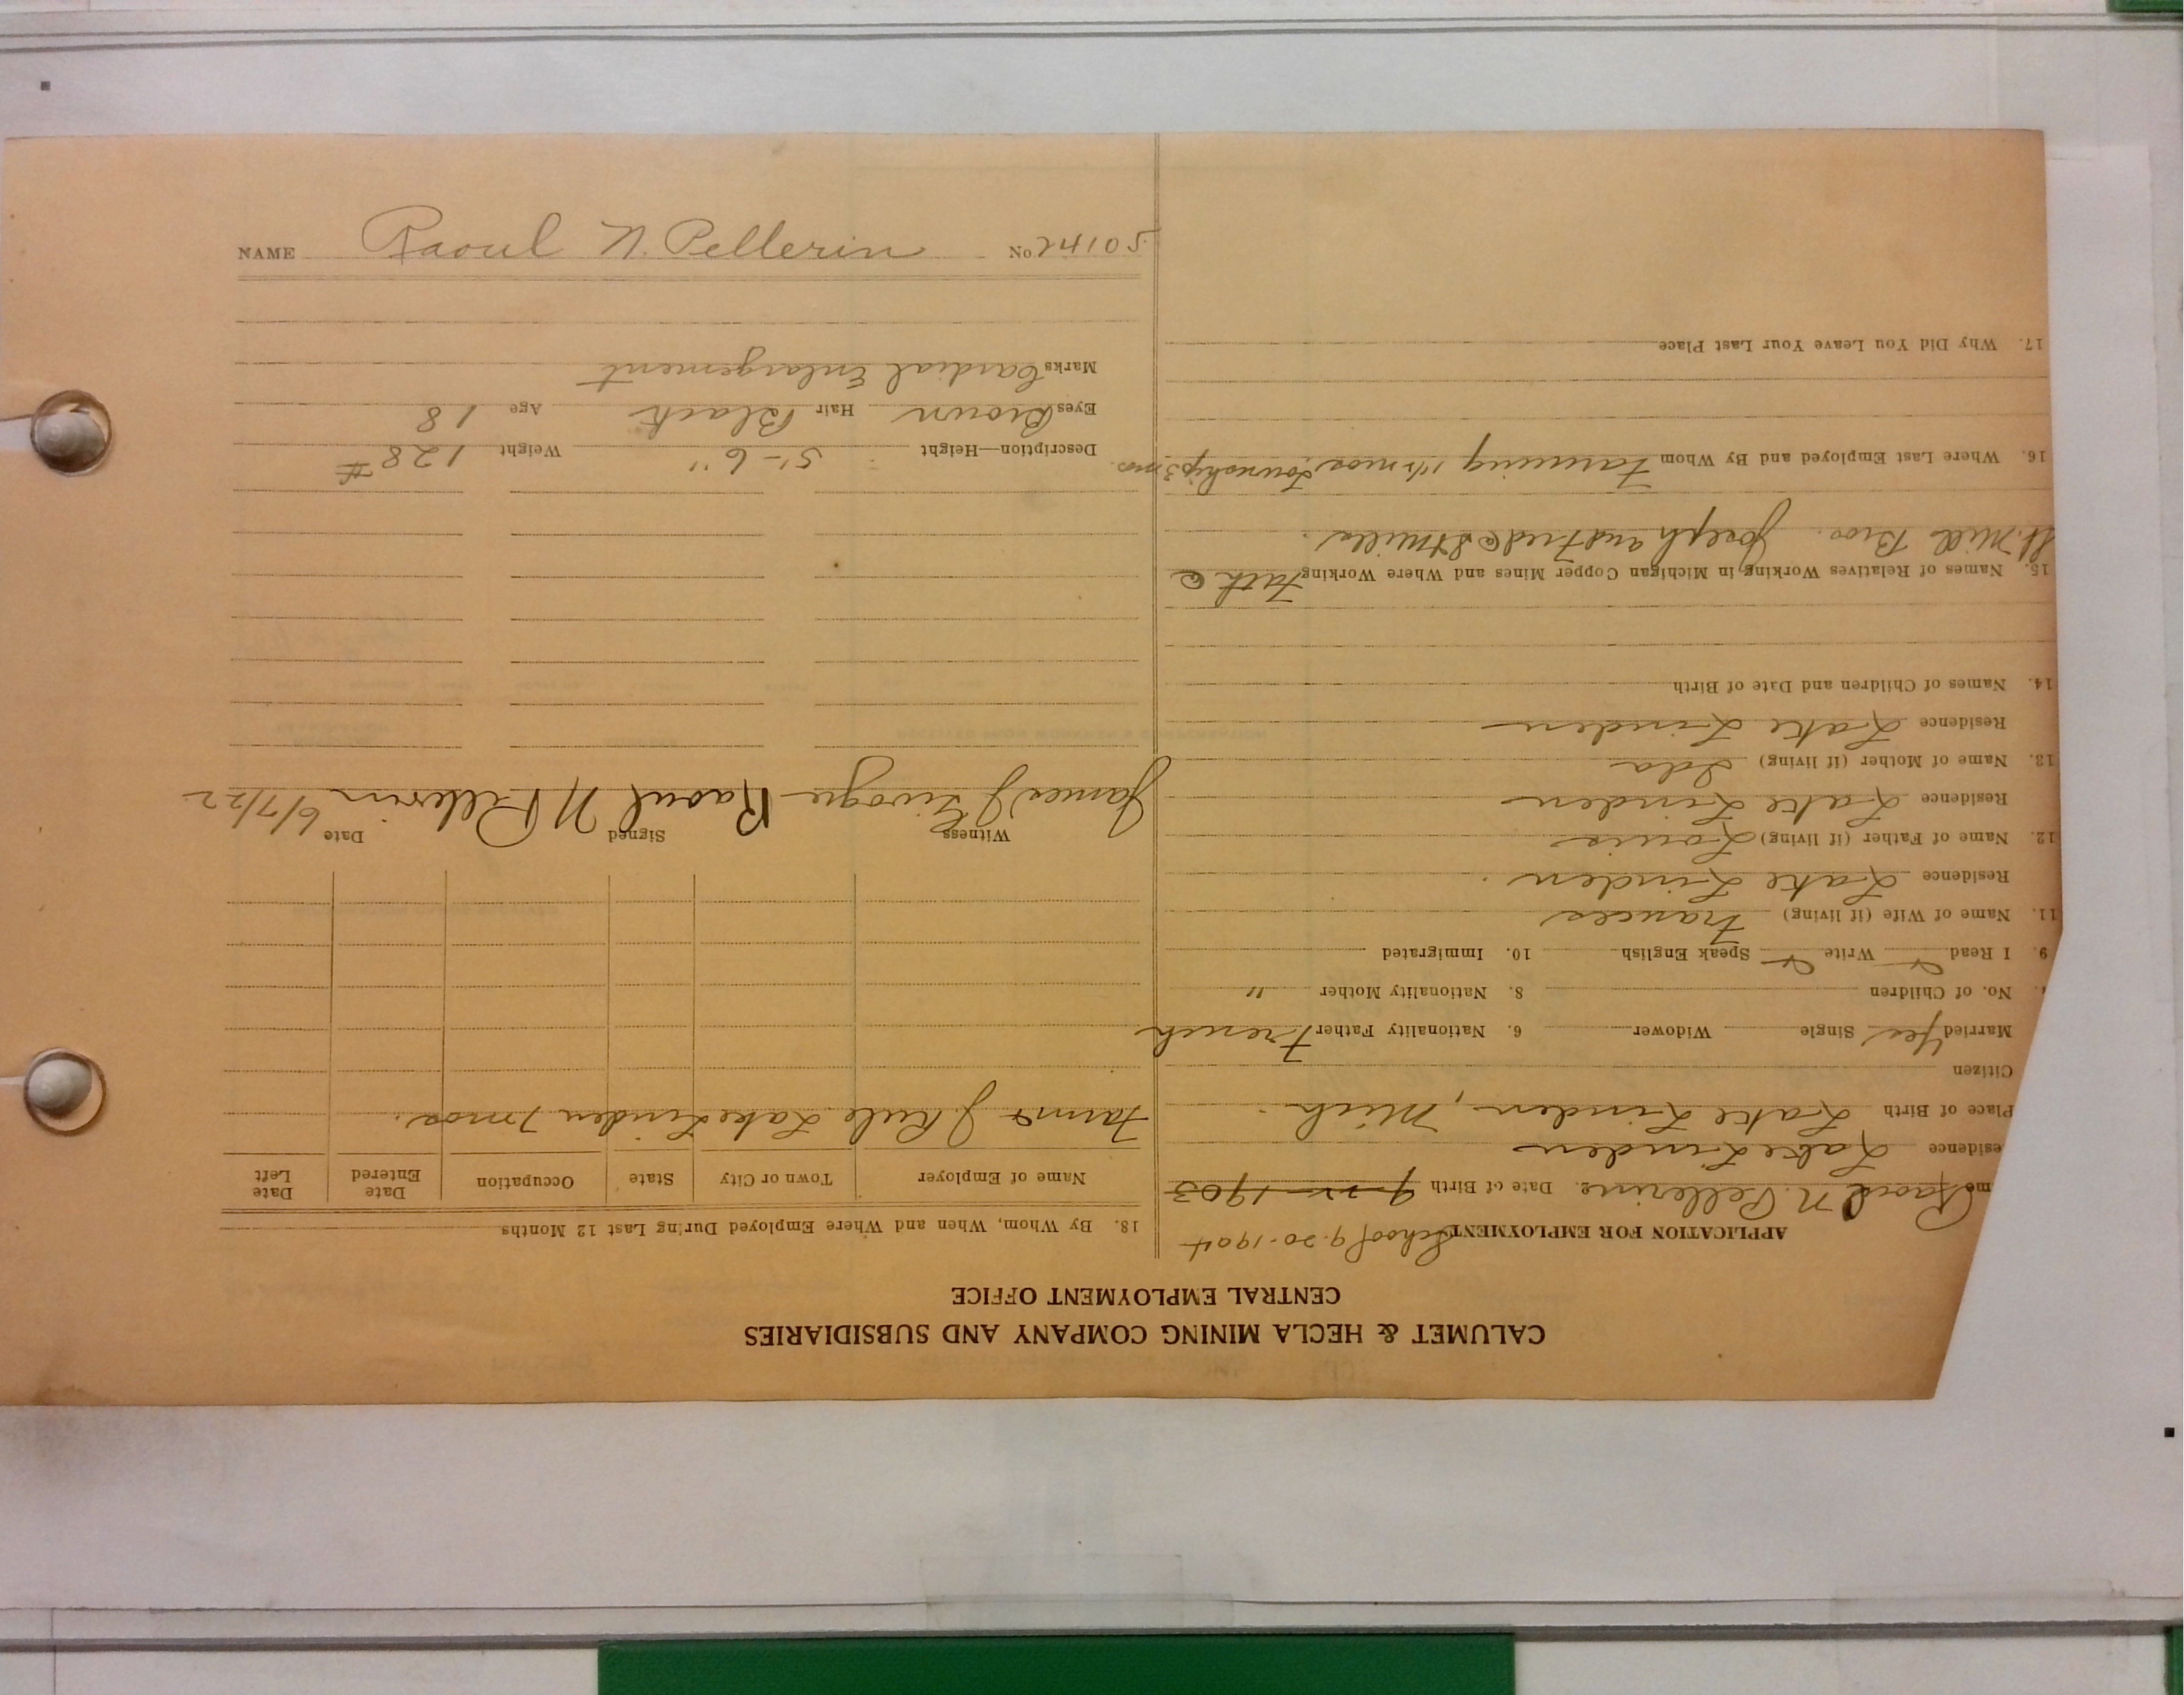 CALUMET & HECLA MINING COMPANY AND SUBSIDIARIES
CENTRAL EMPLOYMENT OFFICE
APPLICATION FOR EMPLOYMENT School 9-20-1904
me Raoul N. Pellerine. Date of Birth 1903
esidence Lake Linden
Place of Birth Lake Linden, Mich.
Citizen
Married Yes Single Widower 6. Nationality Father French
No. of Children 8. Nationality Mother "
9. I Read Write Speak English 10. Immigrated
11. Name of Wife (if living) Frances
Residence Lake Linden.
12. Name of Father (if living) Louis
Residence Lake Linden
13. Name of Mother (if living) Ida
Residence Lake Linden
14. Names of Children and Date of Birth
15. Names of Relatives Working in Michigan Copper Mines and Where Working Fath @
St. Mill Bros. Joseph and Fred @ St mills.
16. Where Last Employed and By Whom Farming mos. Township 3 mos.
17. Why Did You Leave Your Last Place
18. By Whom, When and Where Employed During Last 12 Months
Name of Employer Town or City State Occupation Date Entered Date Left
Farms J. Rule Lake Linden 7 mos.
Witness Signed Date
James J Raoul N Pellerin 6/7/22
Description—Height 5'-6" Weight 128#
Eyes Brown Hair Black Age 18
Marks Cardial Enlargement
NAME Raoul N. Pellerin No.